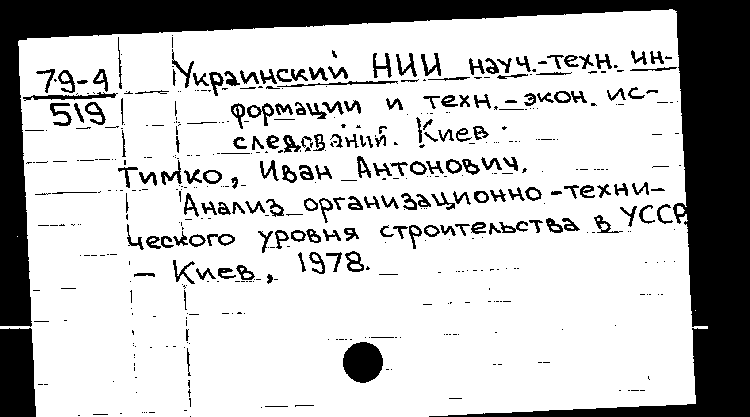 79-4
519
Украинский НИИ науч.-техн. ин-
формации и техн.-экон. ис-
следований. Киев.
Тимко, Иван Антонович.
Анализ организационно-техни-
ческого уровня строительства в УССР
- Киев, 1978.